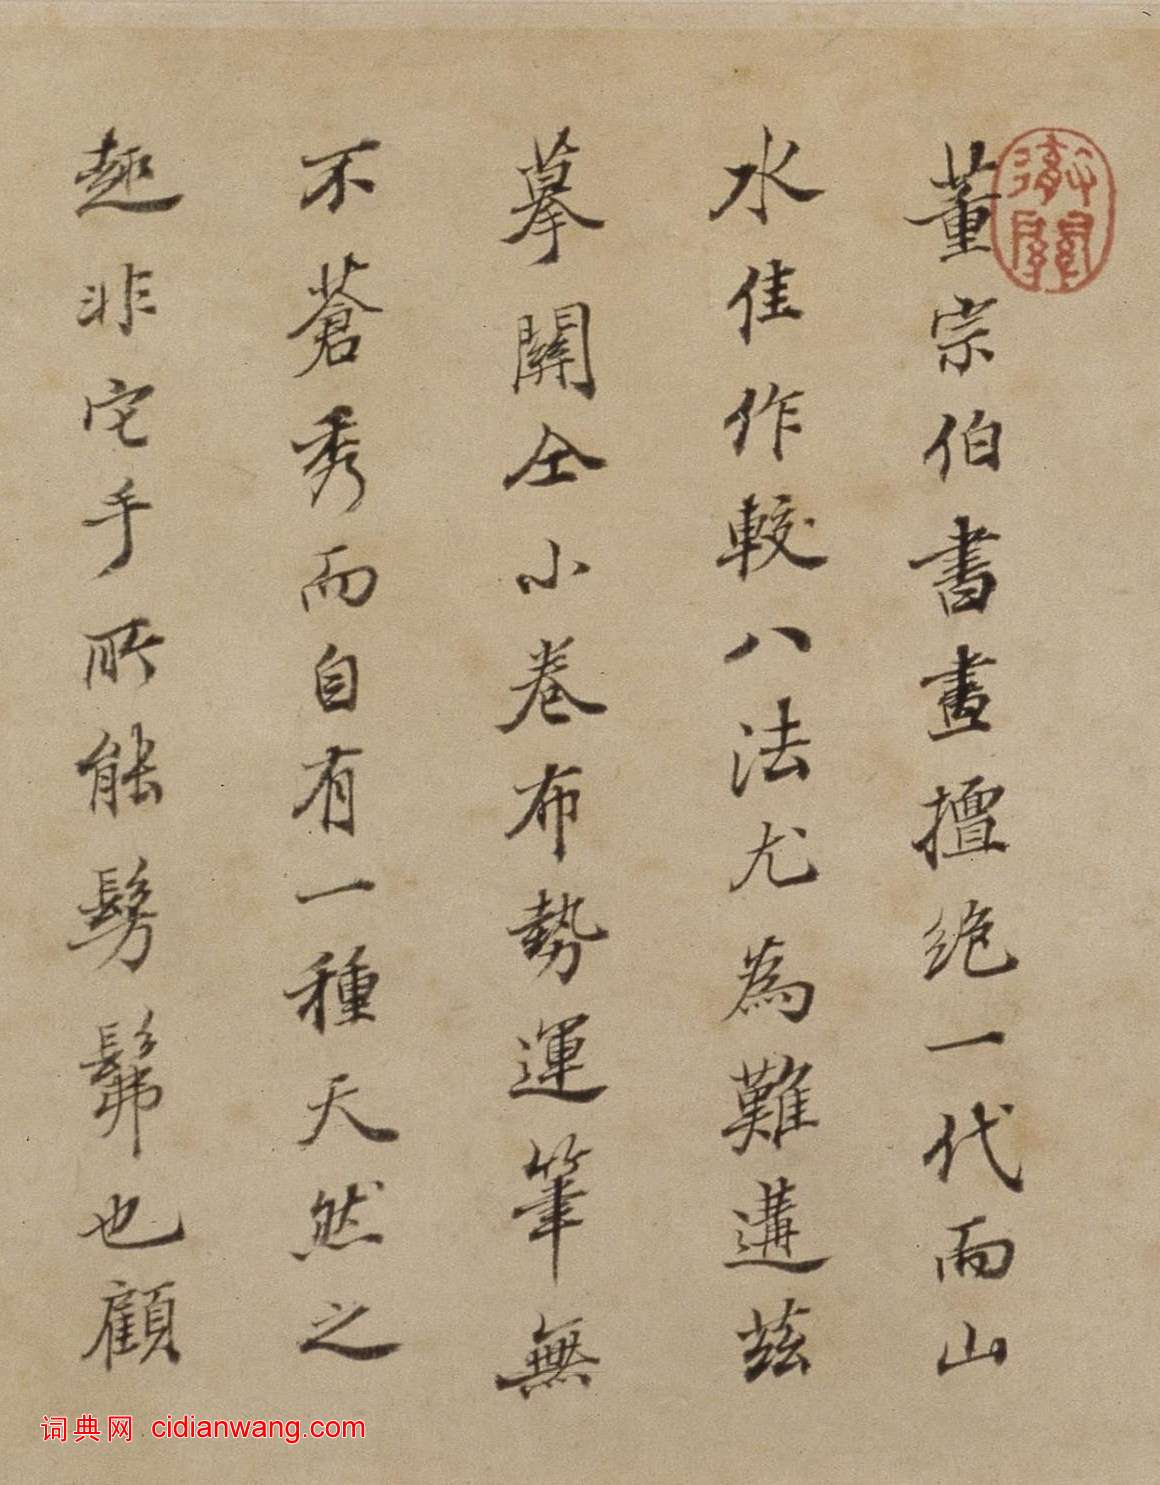 董宗伯書畫擅絶一代而山
水佳作較八法尤為難遘茲
摹關仝小卷布勢運筆無
不蒼秀而自有一種天然之
趣非它手所能髣髴也顧
词典网 cidianwang.com